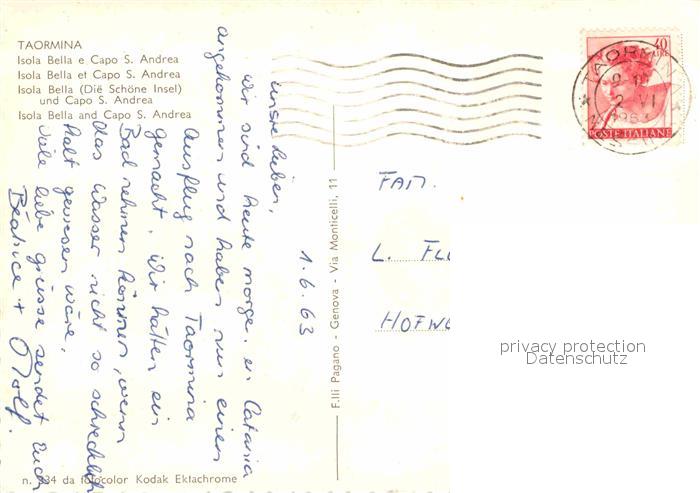 TAORMINA
Isola Bella e Capo S. Andrea
Isola Bella et Capo S. Andrea
Isola Bella (Dië Schöne Insel)
und Capo S. Andrea
Isola Bella and Capo S. Andrea
1.6.63
unsre Lieben,
wir sind heute morge. in Catania
angekommen und haben nun einen
Ausflug nach Taormina
gemacht. Wir hätten ein
Bad nehmen können, wenn
das Wasser nicht so schrecklich
kalt gewesen wäre,
Viele liebe grüsse sendet Euch
Béatrice + Rolf.
n. 234 da fotocolor Kodak Ektachrome
F.lli Pagano - Genova - Via Monticelli, 11
40 LIRE
POSTE ITALIANE
TAORMINA
2 VI
1963
FAM.
L. FLU
HOFW
privacy protection
Datenschutz